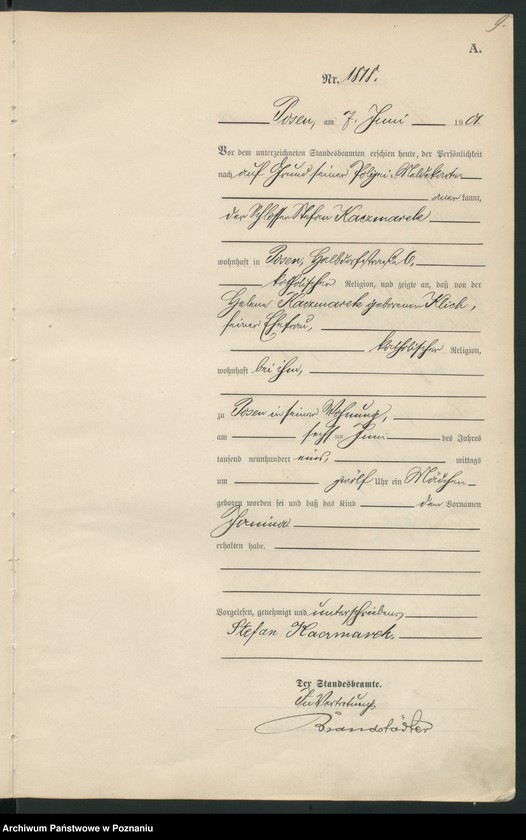 9.
A.
Nr. 1818.
Posen, am 7. Juni 1901.
Vor dem unterzeichneten Standesbeamten erschien heute, der Persönlichkeit
nach auf Grund seiner Polizei-Meldekarte
anerkannt,
der Schlosser Stefan Kaczmarek
wohnhaft in Posen, Halbdorfstraße 6,
katholischer Religion, und zeigte an, daß von der
Helena Kaczmarek geborenen Klich,
seiner Ehefrau,
katholischer Religion,
wohnhaft bei ihm,
zu Posen in seiner Wohnung,
am sechsten Juni des Jahres
tausend neunhundert eins, mittags
um zwölf Uhr ein Mädchen
geboren worden sei und daß das Kind den Vornamen
Janina
erhalten habe.
Vorgelesen, genehmigt und unterschrieben
Stefan Kaczmarek.
Der Standesbeamte.
In Vertretung
Brandstädter
Archiwum Państwowe w Poznaniu